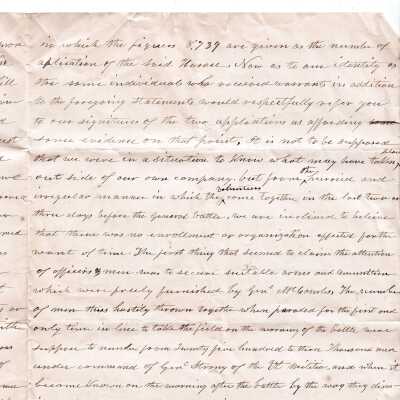 in which the figures 8.739 are given as the number of
aplication of the said Hassel, Now as to our identity as
the same individual who received warrants in addition
to the foregoing statements would respectfully refer you
to our signitures of the two applications as affording
some evidence on that point. It is not to be supposed
that we were in a situation to know what may have taken place
out side of our own company. but from the hurried and
irregular manner in which the volunteers come together, in the last two or
three days before the general battle, we are inclined to believe
that there was no enrollment or organization effected for the
want of time. The first thing that seemed to claim the attention
of officers & men was to secure suitable arms and amunition
which were freely furnished by Genl. McCombs. The number
of men thus hastily thrown together when paraded for the first and
only time in line to take the field on the morning of the battle were
suppose to number from twenty five hundred to three Thousand and
under command of Genl Strong of the Vt Militia, and when it
became known on the morning after the battle by the way they disco